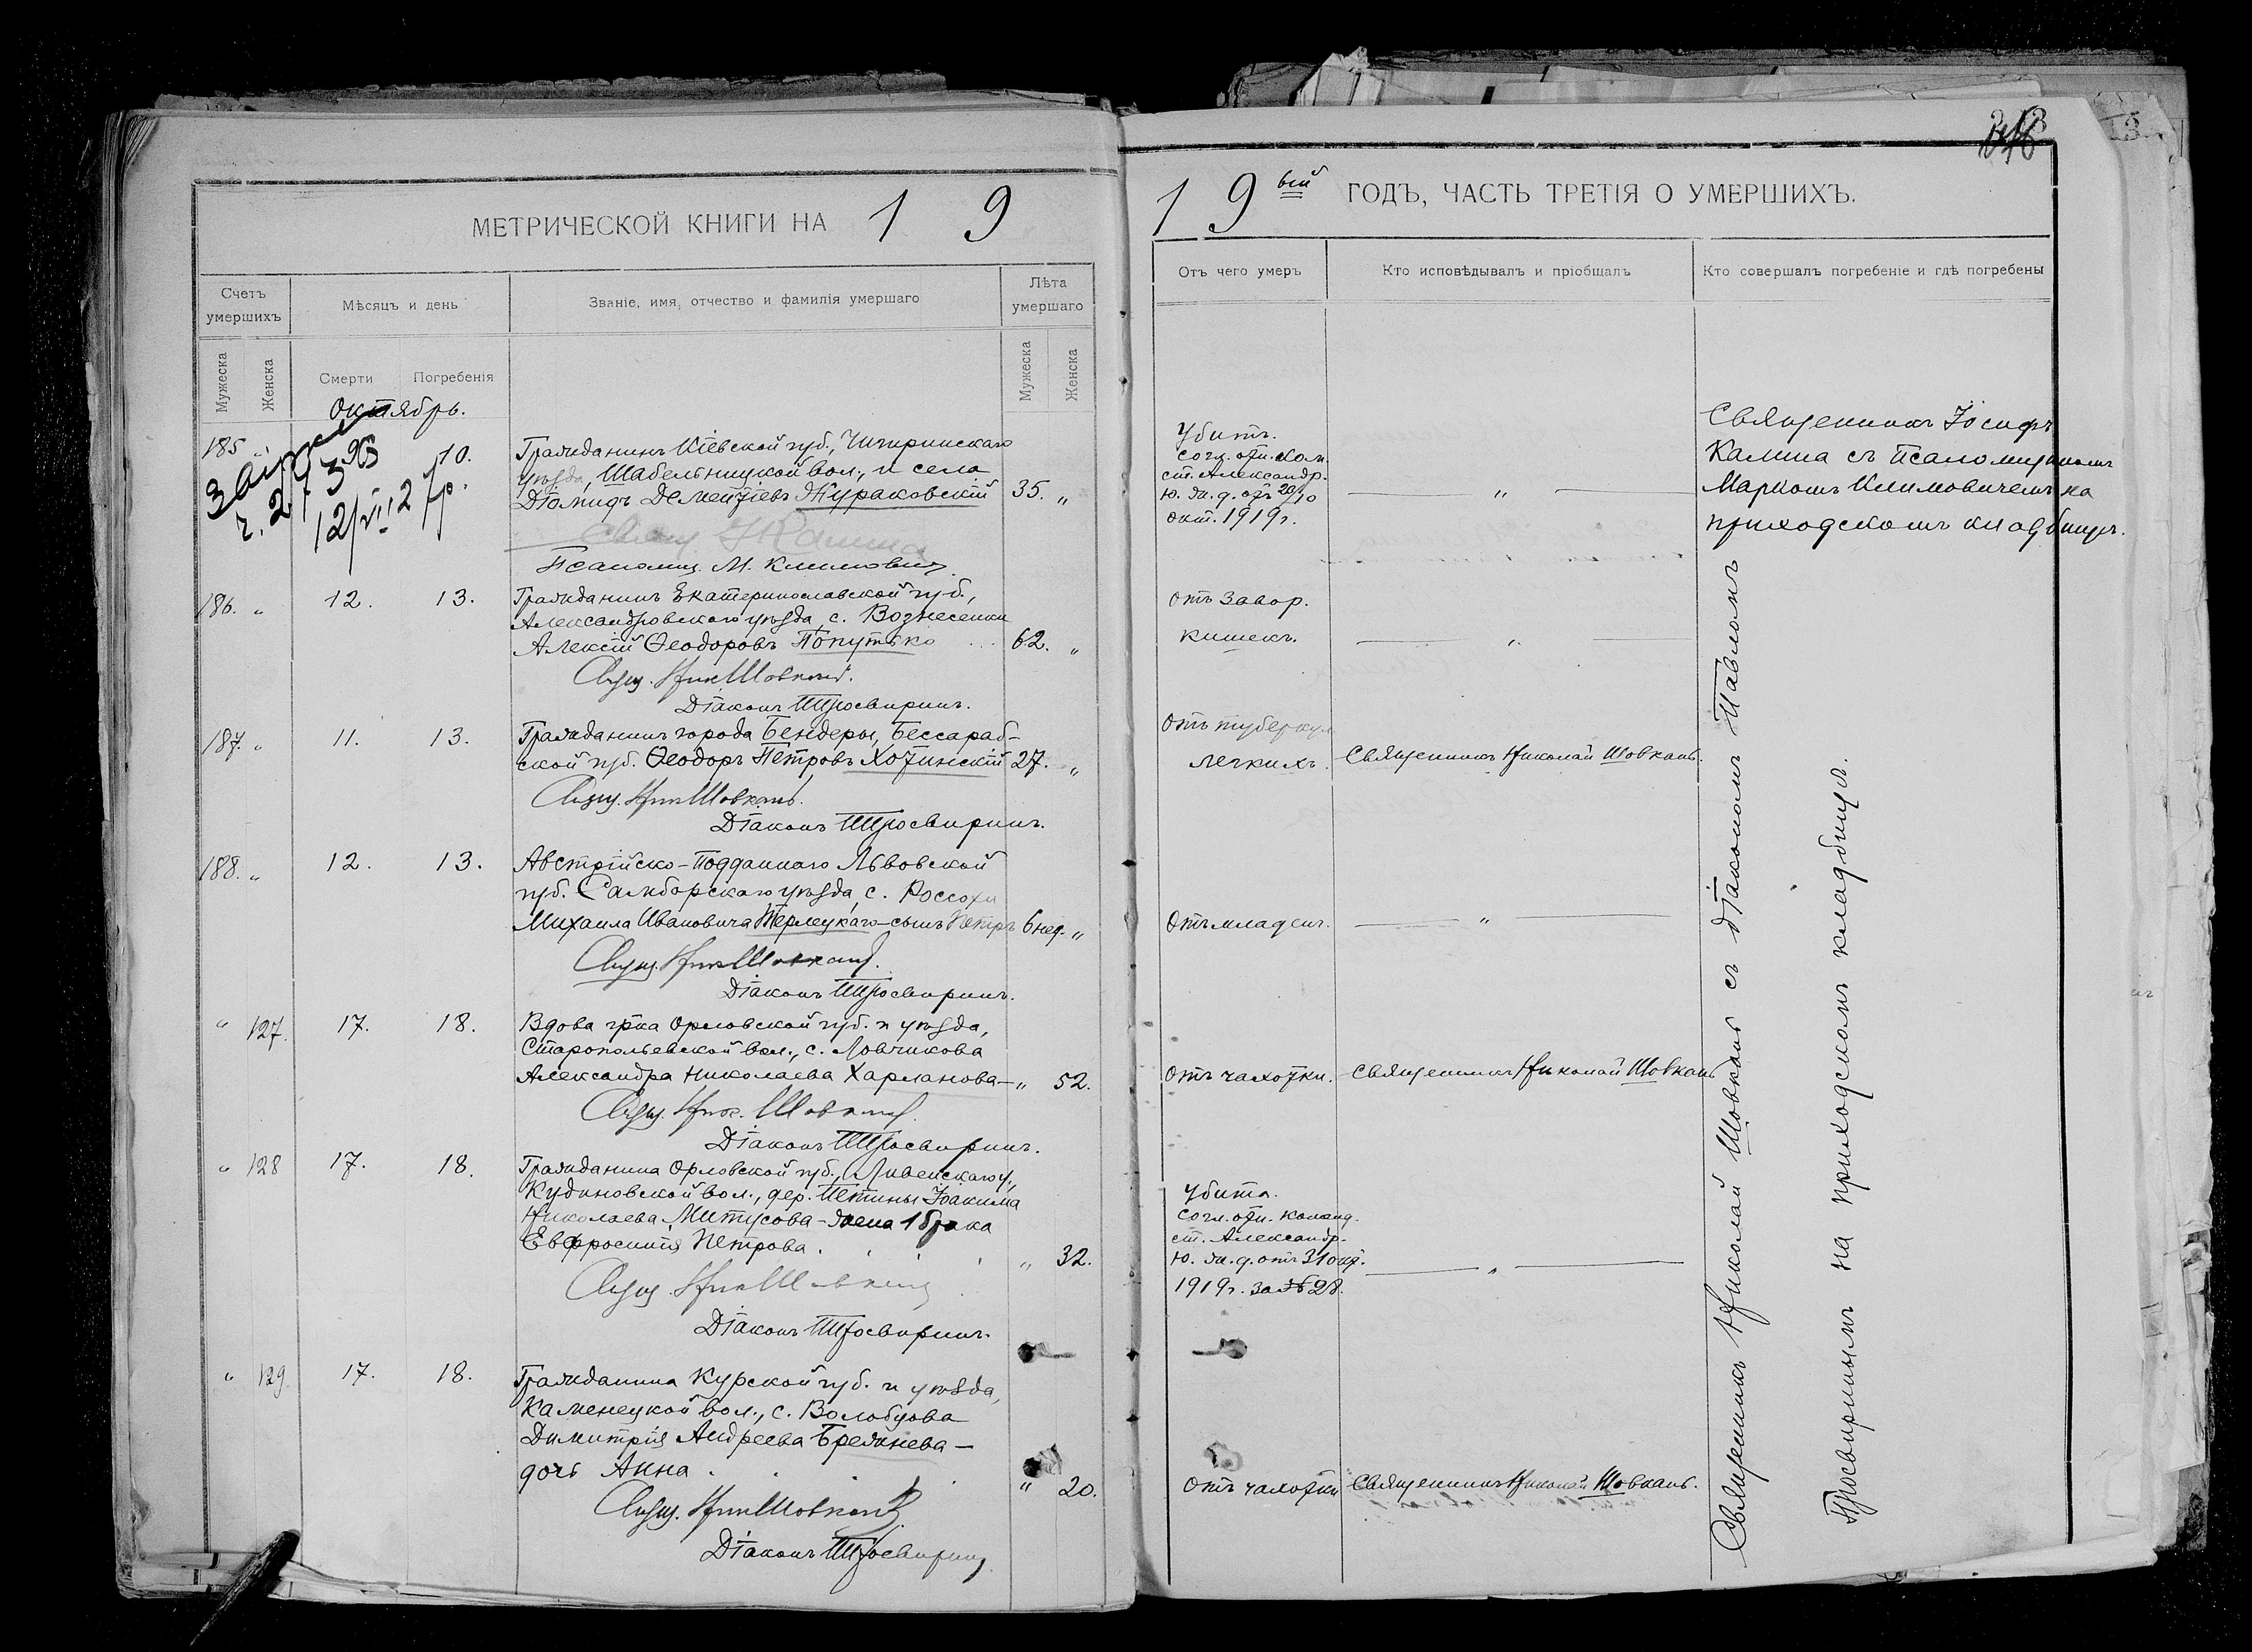 МЕТРИЧЕСКОЙ КНИГИ НА 19
Счетъ умершихъ
Мѣсяцъ и день
Званіе, имя, отчество и фамилія умершаго
Лѣта умершаго
Мужеска
Женска
Смерти
Погребенія
Мужеска
Женска
Октябрь.
185 "
10.
Гражданинъ Кіевской губ., Чигиринскаго
уѣзда, Шабельницкой вол., и села
Діомидъ Дементіевъ Жураковскій 35. "
Свящ. І Калина
Псаломщ. М. Климовичъ
186. " 12. 13.
Гражданинъ Екатеринославской губ.,
Александровскаго уѣзда, с. Вознесенки
Алексій Ѳеодоровъ Попутько 62. "
Свящ. Ник Шовкань.
Діаконъ Просвиринъ.
187. " 11. 13.
Гражданинъ города Бендеры, Бессараб-
ской губ. Ѳеодоръ Петровъ Хотинскій 27. "
Свящ. Ник Шовкань.
Діаконъ Просвиринъ.
188. " 12. 13.
Австрійско-Подданнаго Львовской
губ. Самборскаго уѣзда, с. Россохи
Михаила Ивановича Терлецкаго - сынъ Петръ 6 нед. "
Свящ. Ник Шовкань.
Діаконъ Просвиринъ.
" 127. 17. 18.
Вдова гр-ка Орловской губ. и уѣзда,
Старопольевской вол., с. Ловчикова
Александра Николаева Харланова — " 52.
Свящ. Ник. Шовкань.
Діаконъ Просвиринъ.
" 128 17. 18.
Гражданина Орловской губ., Ливенскаго у.,
Кудиновской вол., дер. Петины Іоакима
Николаева Митусова - жена 1 брака
Евфросинія Петрова " 32.
Свящ. Ник Шовкань
Діаконъ Просвиринъ.
" 129. 17. 18.
Гражданина Курской губ. и уѣзда,
Каменецкой вол., с. Волобуева
Димитрія Андреева Брежнева —
дочь Анна " 20.
Свящ. Ник Шовкань
Діаконъ Просвиринъ
19 вый ГОДЪ, ЧАСТЬ ТРЕТІЯ О УМЕРШИХЪ.
Отъ чего умеръ
Кто исповѣдывалъ и пріобщалъ
Кто совершалъ погребеніе и гдѣ погребены
Убитъ.
согл. отн. Ком.
ст. Александр.
Ю. ж. д. отъ 20/10
окт. 1919 г.
— " —
Священникъ Іосифъ
Калина съ Псаломщикомъ
Маркомъ Климовичемъ на
приходскомъ кладбищѣ.
Отъ завор.
кишекъ.
— " —
Отъ туберкул
легкихъ.
Священникъ Николай Шовкань.
Отъ младен.
— " —
Отъ чахотки.
Священникъ Николай Шовкань
Убита.
Согл. отн. команд.
ст. Александр.
Ю. ж. д. отъ 31 окт.
1919 г. за № 28.
— " —
Отъ чахотки
Священникъ Николай Шовкань.
Священникъ Николай Шовкань съ діакономъ Павломъ
Просвиринымъ на приходскомъ кладбищѣ.